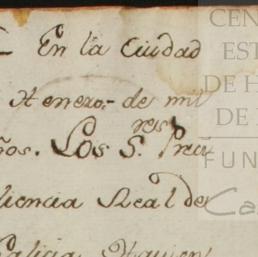 En la Ciudad
Henero, de mil
ños. Los S.res
diencia Real de
Galicia
CEN
EST
DE H
DE
FUN